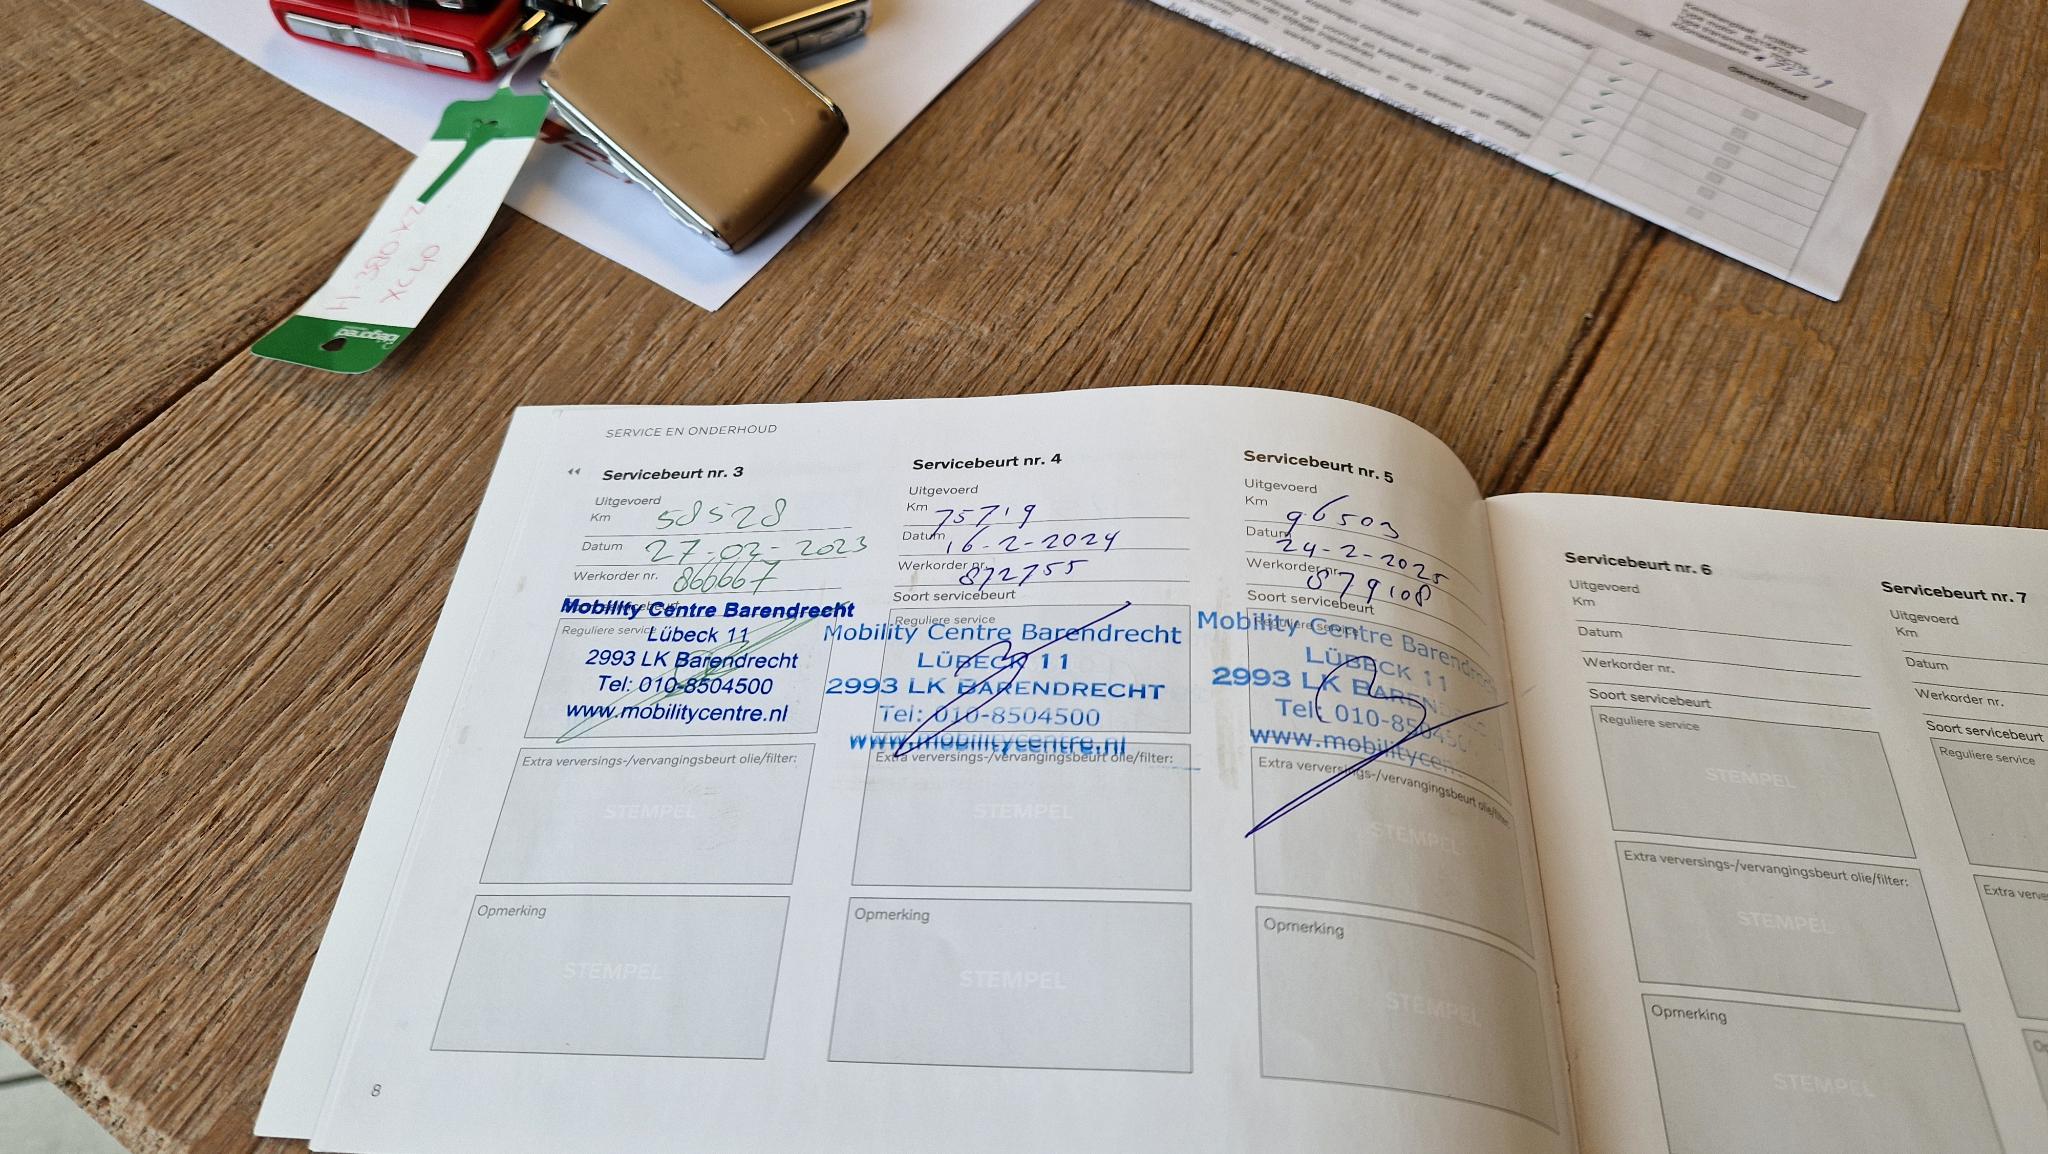 XC40
SERVICE EN ONDERHOUD
Servicebeurt nr. 3
Uitgevoerd
Km 58528
Datum 27-02-2023
Werkorder nr. 866667
Reguliere service
Mobility Centre Barendrecht
Lübeck 11
2993 LK Barendrecht
Tel: 010-8504500
www.mobilitycentre.nl
Extra verversings-/vervangingsbeurt olie/filter:
STEMPEL
Opmerking
STEMPEL
8
Servicebeurt nr. 4
Uitgevoerd
Km 75719
Datum 16-2-2024
Werkorder nr. 872755
Soort servicebeurt
Reguliere service
Mobility Centre Barendrecht
LÜBECK 11
2993 LK BARENDRECHT
Tel: 010-8504500
www.mobilitycentre.nl
Extra verversings-/vervangingsbeurt olie/filter:
STEMPEL
Opmerking
STEMPEL
Servicebeurt nr. 5
Uitgevoerd
Km 96503
Datum 24-2-2025
Werkorder nr. 879108
Soort servicebeurt
Reguliere service
Mobility Centre Barendrecht
LÜBECK 11
2993 LK BARENDRECHT
Tel: 010-8504500
www.mobilitycen
Extra verversings-/vervangingsbeurt olie/filter:
STEMPEL
Opmerking
STEMPEL
Servicebeurt nr. 6
Uitgevoerd
Km
Datum
Werkorder nr.
Soort servicebeurt
Reguliere service
STEMPEL
Extra verversings-/vervangingsbeurt olie/filter:
STEMPEL
Opmerking
STEMPEL
Servicebeurt nr. 7
Uitgevoerd
Km
Datum
Werkorder nr.
Soort servicebeurt
Reguliere service
Extra verve
Op